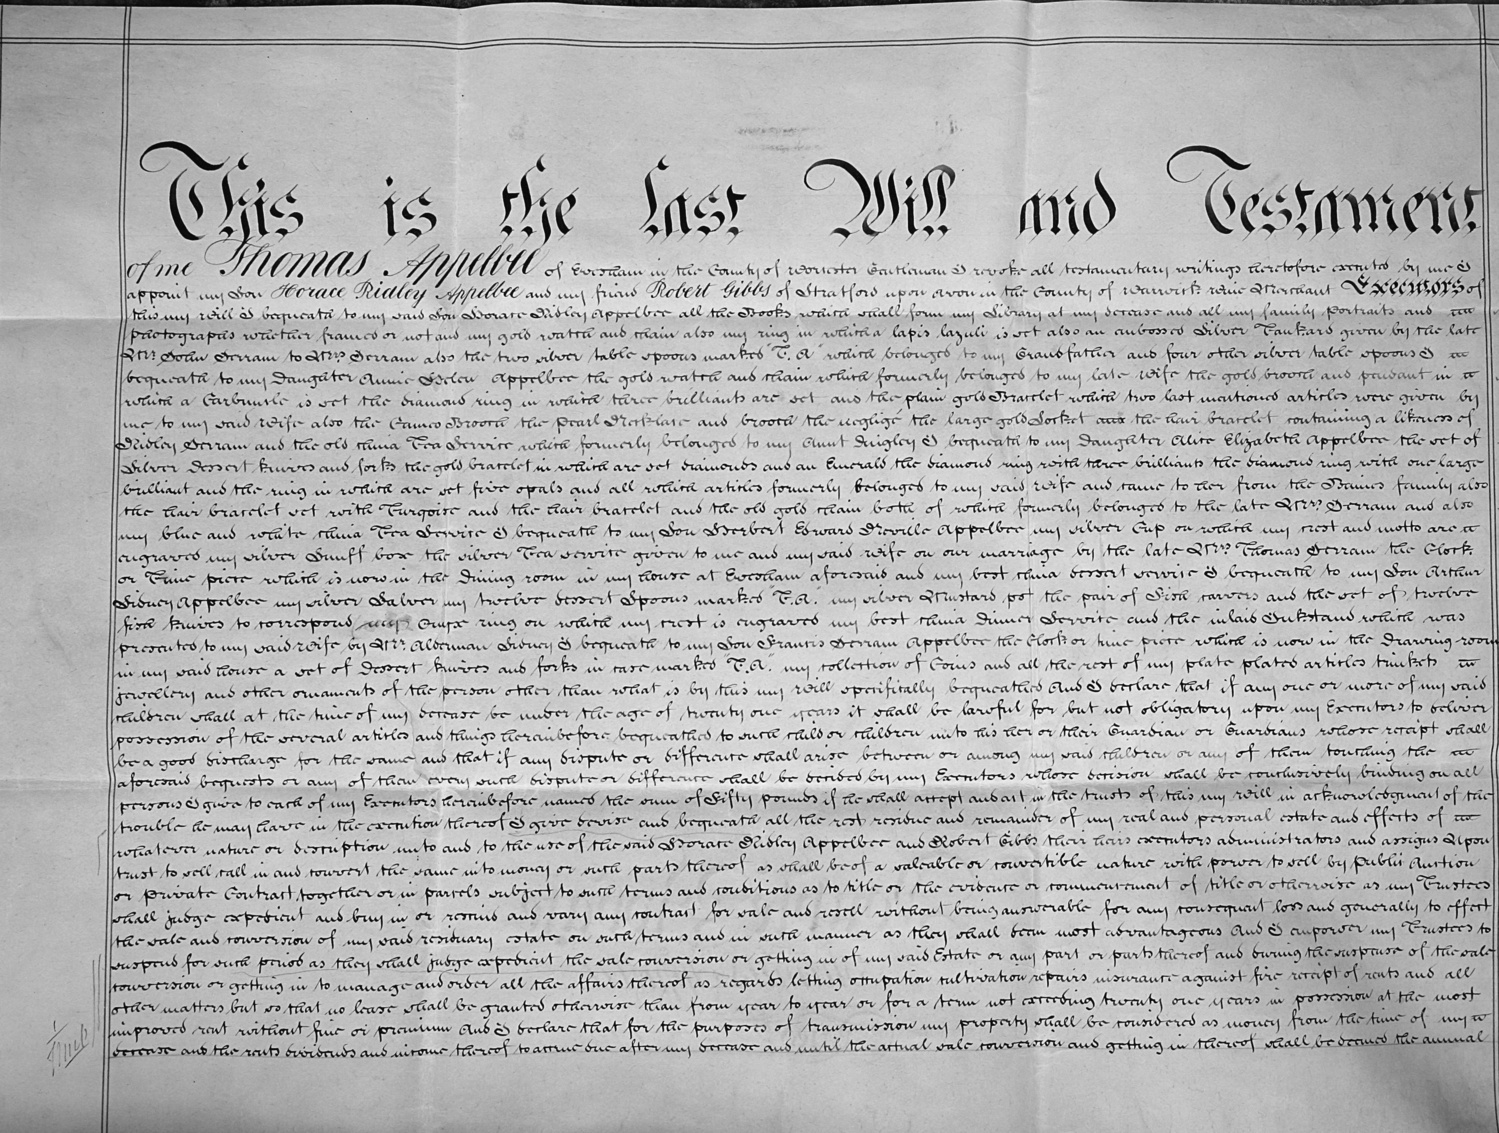 This is the last Will and Testament
of me Thomas Appelbee of Evesham in the County of Worcester Gentleman I revoke all testamentary writings heretofore executed by me I
appoint my Son Horace Ridley Appelbee and my friend Robert Gibbs of Stratford upon Avon in the County of Warwick Wine Merchant Executors of
this my Will I bequeath to my said Son Horace Ridley Appelbee all the Books which shall form my Library at my decease and all my family Portraits and
photographs whether framed or not and my gold watch and chain also my ring in which a lapis lazuli is set also an embossed Silver Tankard given by the late
Mr. John Derram to Mrs. Derram also the two silver table spoons marked "T.A" which belonged to my Grandfather and four other silver table spoons I
bequeath to my Daughter Annie Helen Appelbee the gold watch and chain which formerly belonged to my late Wife the gold brooch and pendant in
which a Carbuncle is set the diamond ring in which three brilliants are set and the plain gold Bracelet which two last mentioned articles were given by
me to my said Wife also the Cameo Brooch the Pearl Necklace and brooch the negligé the large gold Locket and the hair bracelet containing a likeness of
Ridley Derram and the old china Tea Service which formerly belonged to my Aunt I bequeath to my Daughter Alice Elizabeth Appelbee the set of
Silver dessert knives and forks the gold bracelet in which are set diamonds and an Emerald the diamond ring with three brilliants the diamond ring with one large
brilliant and the ring in which are set five opals and all which articles formerly belonged to my said Wife and came to her from the Baines family also
the hair bracelet set with Turqoise and the hair bracelet and the old gold chain both of which formerly belonged to the late Mrs. Derram and also
my blue and white china Tea Service I bequeath to my Son Herbert Edward Neville Appelbee my silver Cup on which my crest and motto are
engraved my silver Snuff box the silver Tea service given to me and my said Wife on our marriage by the late Mrs. Thomas Derram the Clock
or Time piece which is now in the Dining room in my house at Evesham aforesaid and my best china dessert service I bequeath to my Son Arthur
Sidney Appelbee my silver Salver my twelve dessert Spoons marked "T.A." my silver Mustard pot the pair of Fish carvers and the set of twelve
fish knives to correspond my Onyx ring on which my crest is engraved my best china Dinner Service and the inlaid Inkstand which was
presented to my said Wife by Mr. Alderman Sidney I bequeath to my Son Francis Derram Appelbee the Clock or time piece which is now in the Drawing room
in my said house a set of Dessert knives and forks in case marked "T.A." my collection of Coins and all the rest of my plate plated articles trinkets
jewellery and other ornaments of the person other than what is by this my Will specifically bequeathed And I declare that if any one or more of my said
children shall at the time of my decease be under the age of twenty one years it shall be lawful for but not obligatory upon my Executors to deliver
possession of the several articles and things hereinbefore bequeathed to such child or children unto his her or their Guardian or Guardians whose receipt shall
be a good discharge for the same and that if any dispute or difference shall arise between or among my said children or any of them touching the
aforesaid bequests or any of them every such dispute or difference shall be decided by my Executors whose decision shall be conclusively binding on all
persons I give to each of my Executors hereinbefore named the sum of Fifty pounds if he shall accept and act in the trusts of this my Will in acknowledgment of the
trouble he may have in the execution thereof I give devise and bequeath all the rest residue and remainder of my real and personal estate and effects of
whatever nature or description unto and to the use of the said Horace Ridley Appelbee and Robert Gibbs their heirs executors administrators and assigns Upon
trust to sell call in and convert the same into money or such parts thereof as shall be of a saleable or convertible nature with power to sell by Public Auction
or Private Contract together or in parcels subject to such terms and conditions as to title or the evidence or commencement of title or otherwise as my Trustees
shall judge expedient and buy in or rescind and vary any contract for sale and resell without being answerable for any consequent loss and generally to effect
the sale and conversion of my said residuary estate on such terms and in such manner as they shall deem most advantageous And I empower my Trustees to
suspend for such period as they shall judge expedient the sale conversion or getting in of my said Estate or any part or parts thereof and during the suspense of the sale
conversion or getting in to manage and order all the affairs thereof as regards letting occupation cultivation repairs insurance against fire receipt of rents and all
other matters but so that no lease shall be granted otherwise than from year to year or for a term not exceeding twenty one years in possession at the most
improved rent without fine or premium And I declare that for the purposes of transmission my property shall be considered as money from the time of my
decease and the rents dividends and income thereof to accrue due after my decease and until the actual sale conversion and getting in thereof shall be deemed the annual